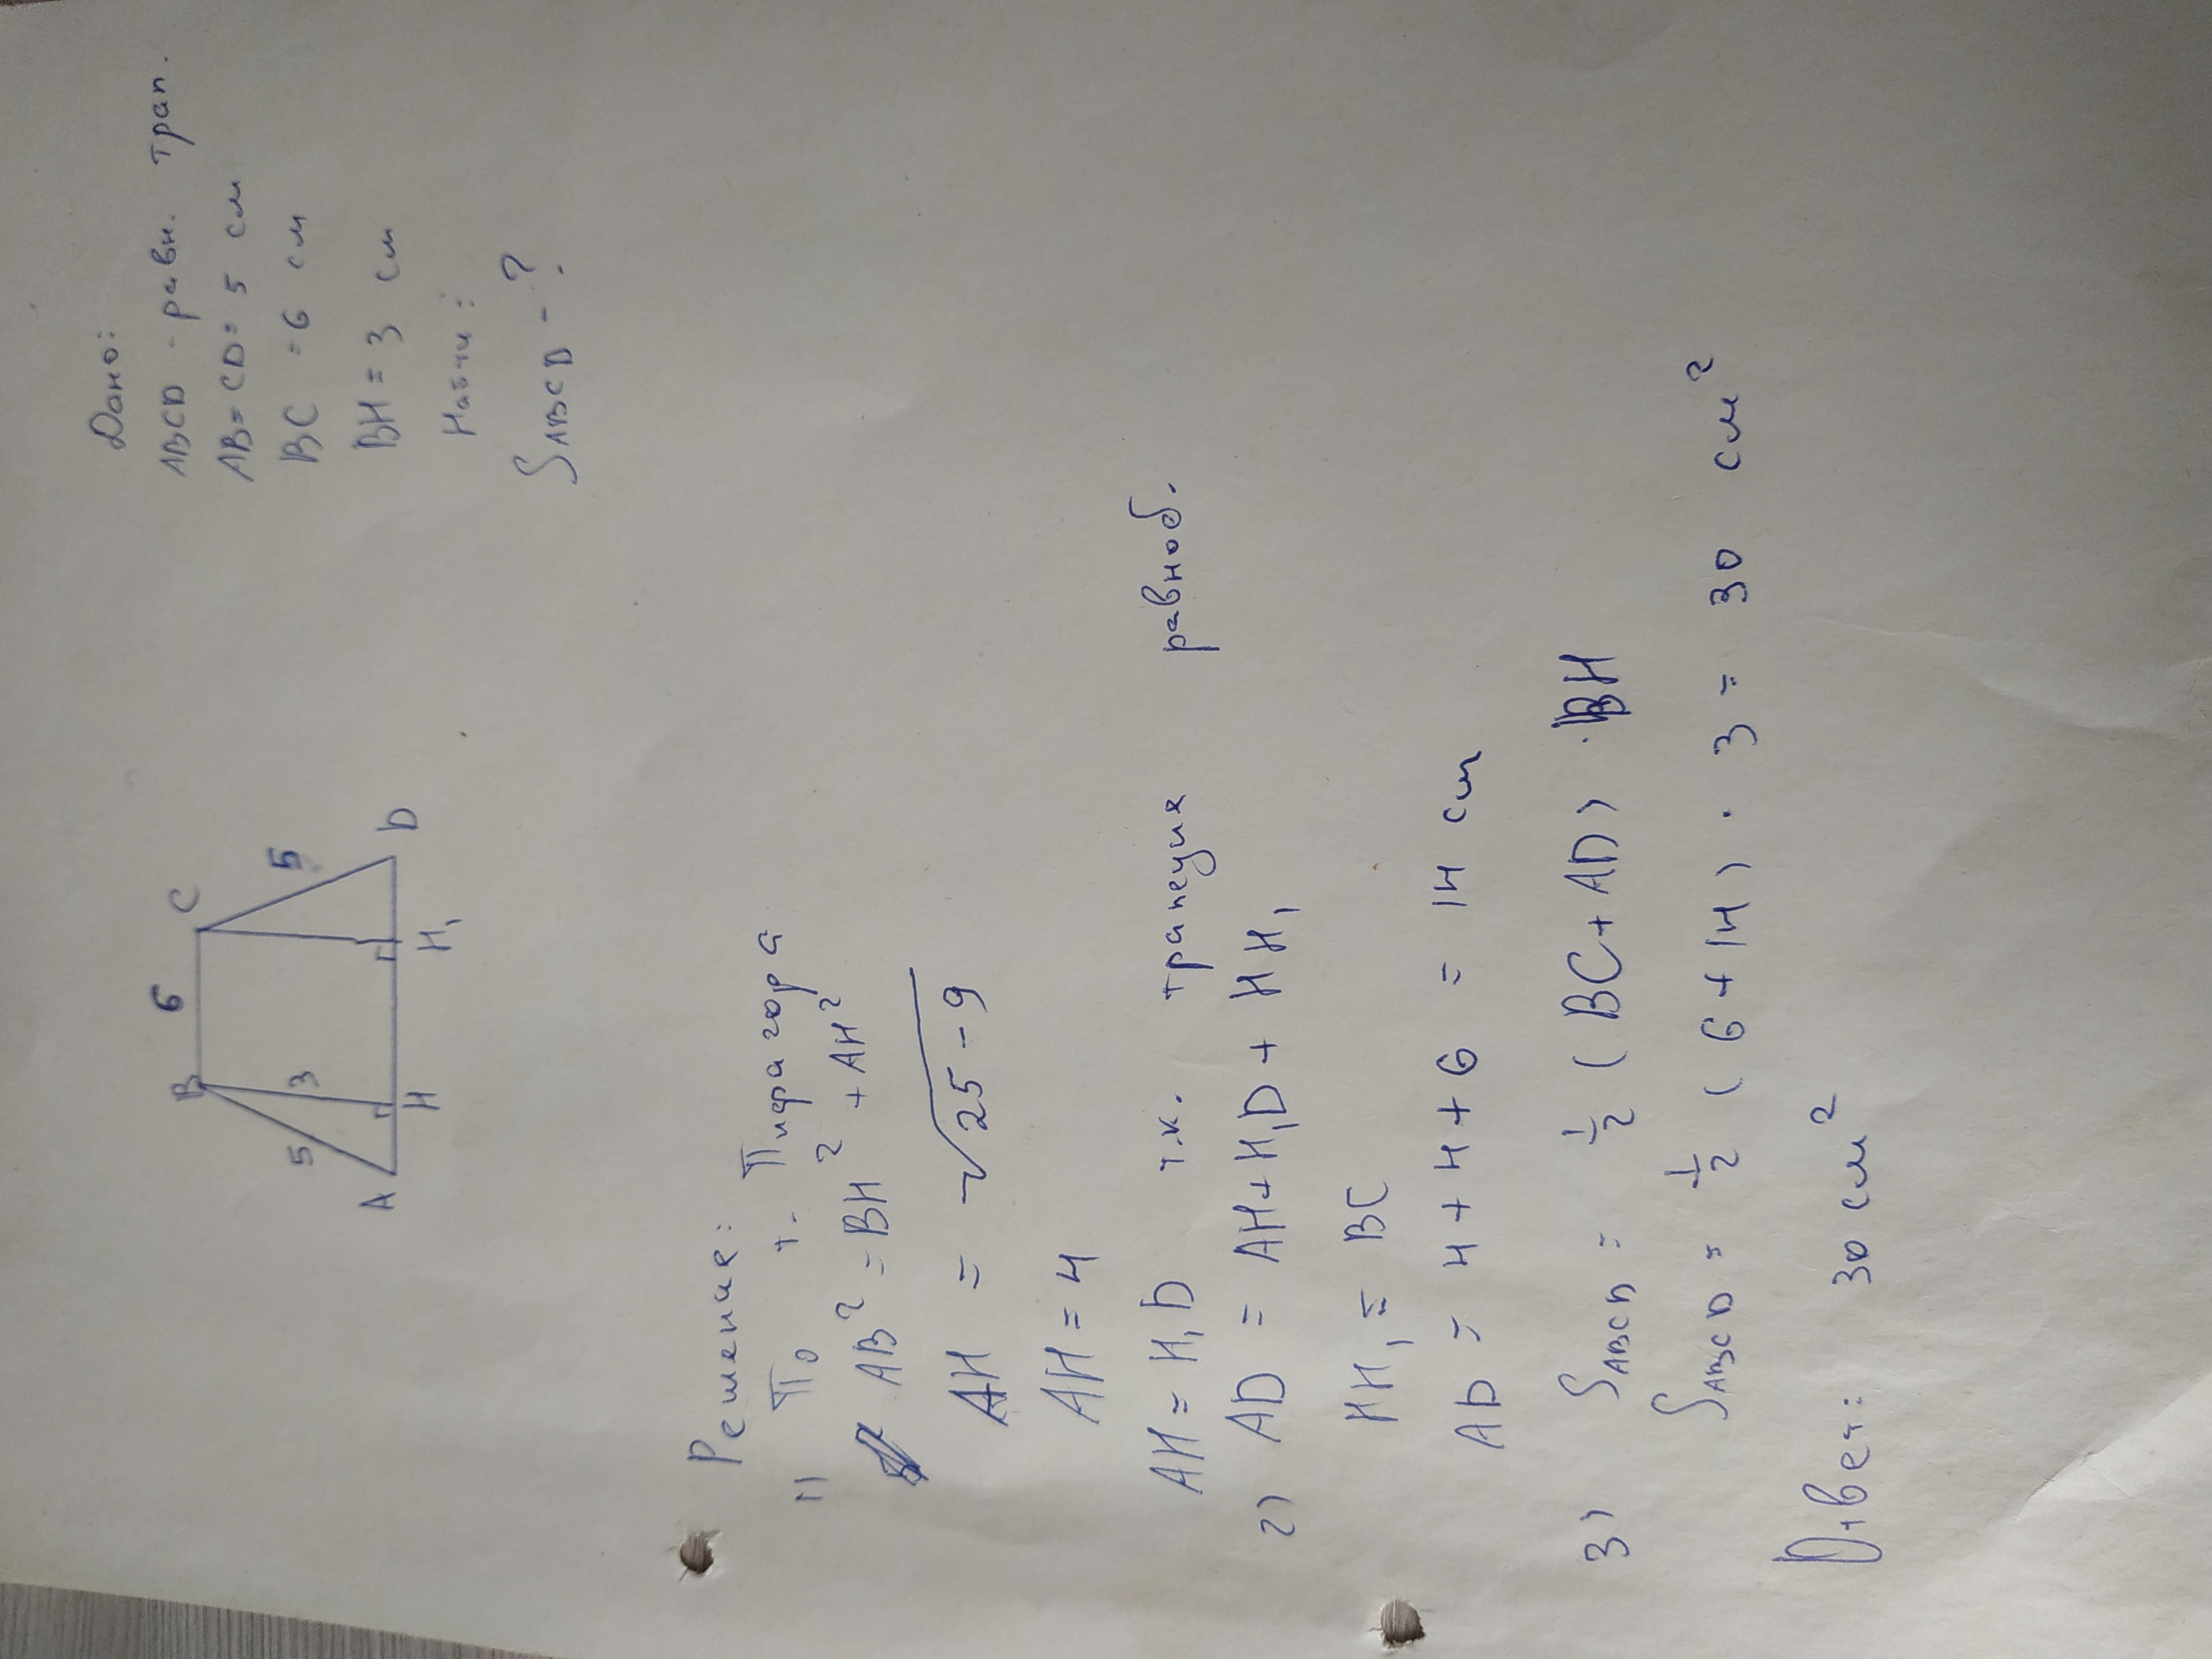 Дано:
ABCD - равн. трап.
AB = CD = 5 см
BC = 6 см
BH = 3 см
Найти:
S ABCD - ?
B 6 C
5 3 5
A H H₁ D
Решение:
1) По т. Пифагора
AB² = BH² + AH²
AH = √25 - 9
AH = 4
AH = H₁D т.к. трапеция равноб.
2) AD = AH + H₁D + HH₁
HH₁ = BC
AD = 4 + 4 + 6 = 14 см
3) S ABCD = 1/2 (BC + AD) · BH
S ABCD = 1/2 (6 + 14) · 3 = 30 см²
Ответ: 30 см²